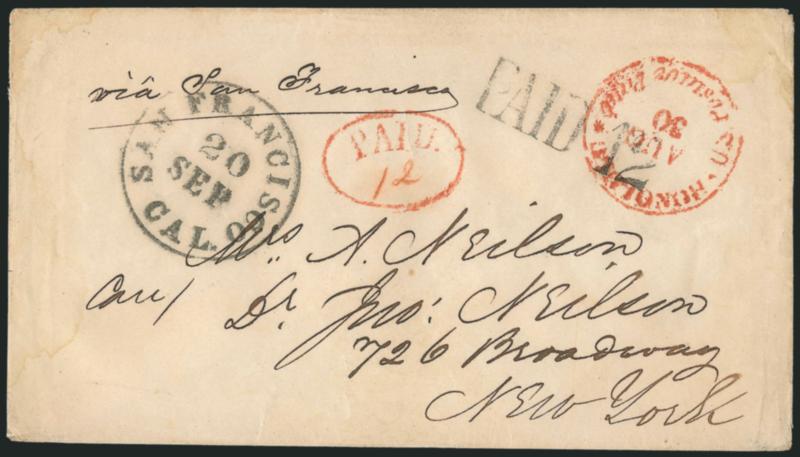 via San Francisco
SAN FRANCISCO
20
SEP
CAL.
PAID.
12
PAID 12
HONOLULU
U.S. Postage Paid
AUG
30
Mrs A. Neilson
Care/
Dr. Jno: Neilson
726 Broadway
New York